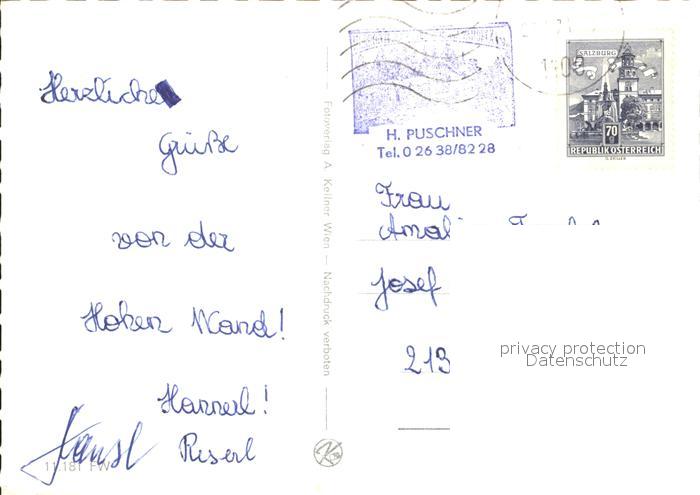 Herzliche
Grüße
von der
Hohen Wand!
Hannerl!
Hansl Reserl
11.181 FW
Fotoverlag A. Kellner Wien — Nachdruck verboten
H. PUSCHNER
Tel. 0 26 38/82 28
SALZBURG
70
REPUBLIK ÖSTERREICH
Frau
Amal
Josef
213
privacy protection
Datenschutz